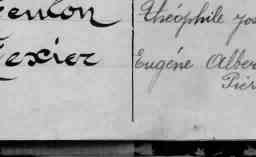 Théophile Jos
Texier Eugène Alber
Pier